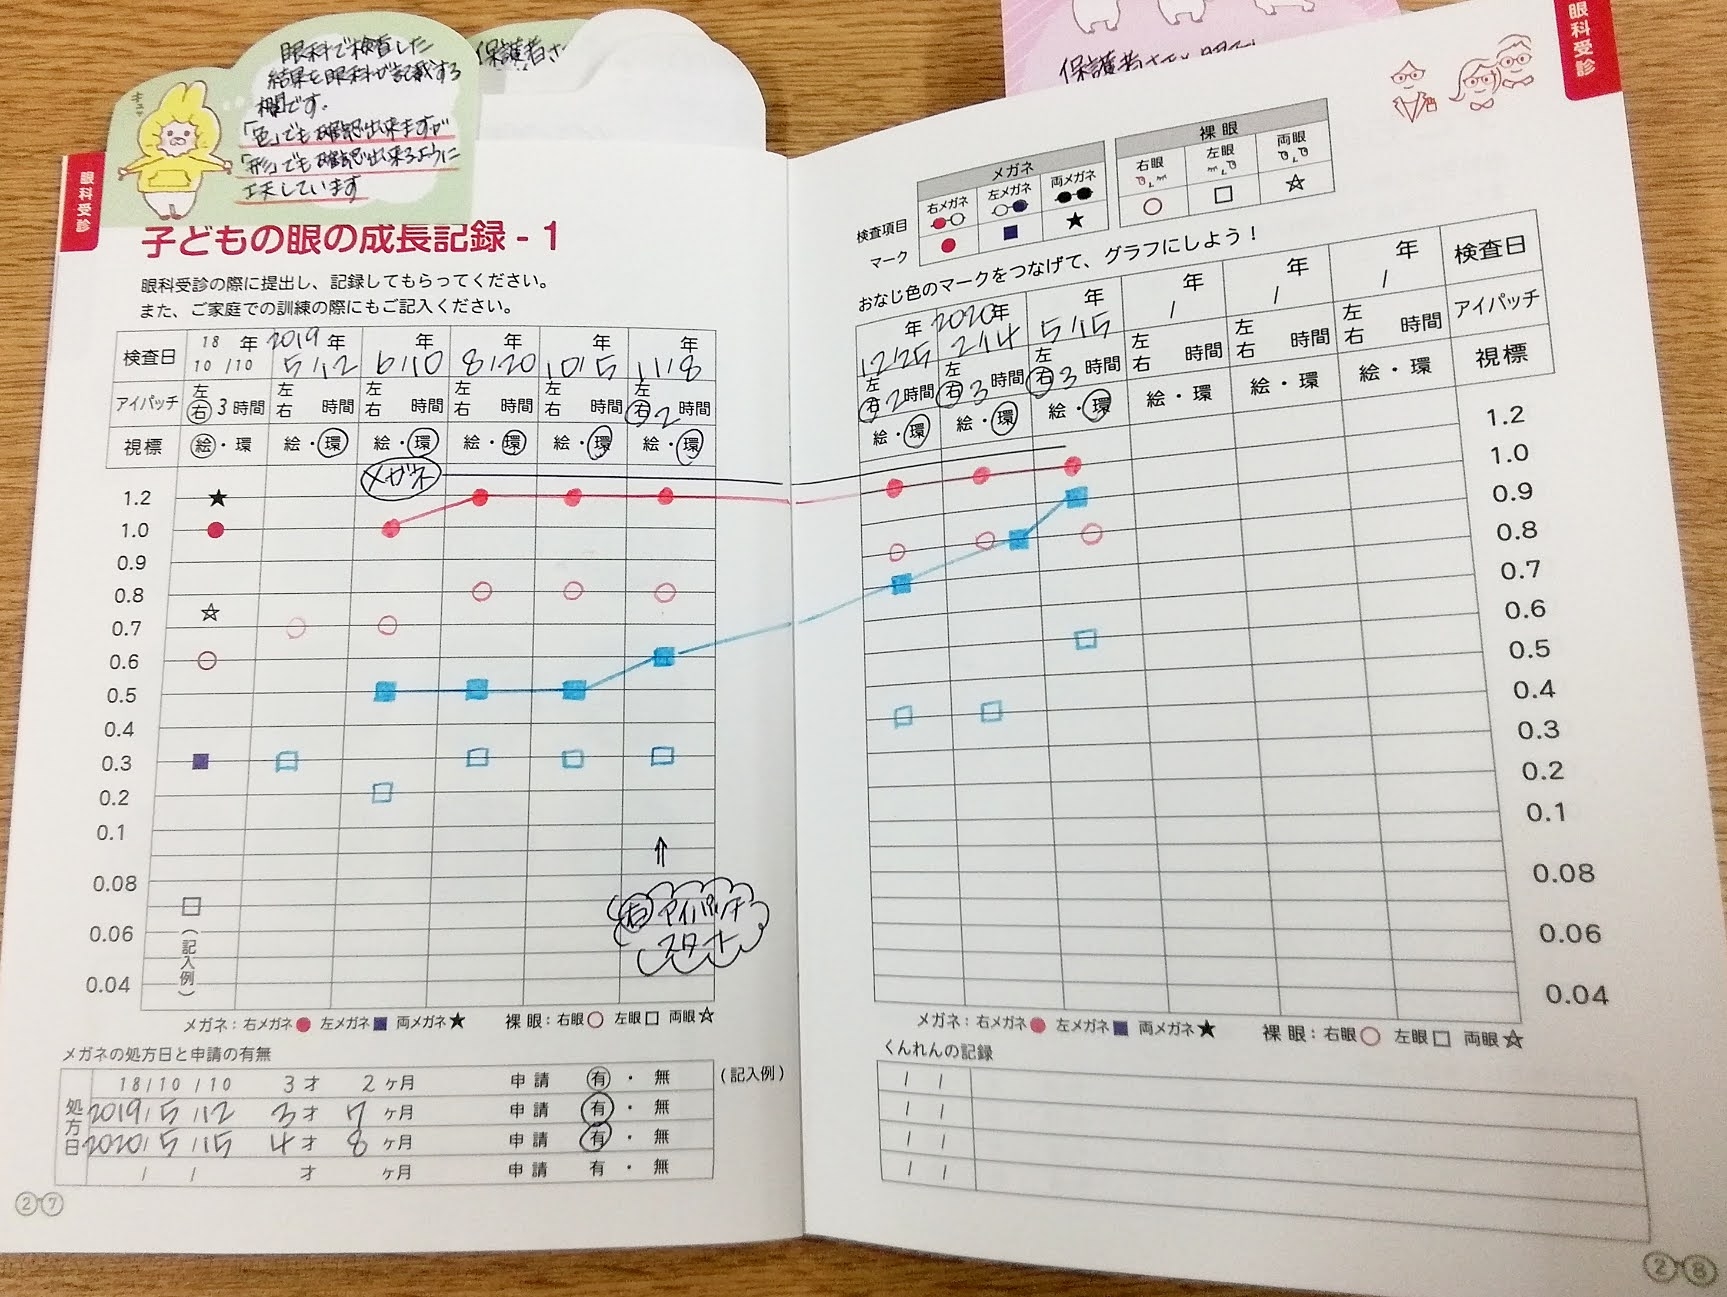 眼科で検査した
結果を眼科が記載する
欄です。
「色」でも確認出来ますが
「形」でも確認出来るように
工夫しています
保護者さ
眼科受診
子どもの眼の成長記録 - 1
眼科受診の際に提出し、記録してもらってください。
また、ご家庭での訓練の際にもご記入ください。
検査日 18年 10/10 2019年 5/12 年 6/10 年 8/20 年 10/5 年 11/8
アイパッチ 左 右 3時間 左 右 時間 左 右 時間 左 右 時間 左 右 時間 左 右 2時間
視標 絵・環 絵・環 絵・環 絵・環 絵・環 絵・環
メガネ
1.2
1.0
0.9
0.8
0.7
0.6
0.5
0.4
0.3
0.2
0.1
0.08
0.06
0.04
(記入例)
右 アイパッチ
スタート
メガネ：右メガネ● 左メガネ■ 両メガネ★ 裸眼：右眼○ 左眼□ 両眼☆
メガネの処方日と申請の有無
処方日
18/10/10 3才 2ヶ月 申請 有・無 (記入例)
2019/5/12 3才 7ヶ月 申請 有・無
2020/5/15 4才 8ヶ月 申請 有・無
/ / 才 ヶ月 申請 有・無
27
保護者さ
眼科受診
メガネ 裸眼
検査項目 右メガネ 左メガネ 両メガネ 右眼 左眼 両眼
マーク ● ■ ★ ○ □ ☆
おなじ色のマークをつなげて、グラフにしよう！
年 12/25 2020年 2/14 年 5/15 年 / 年 / 年 / 検査日
左 右 2時間 左 右 3時間 左 右 3時間 左 右 時間 左 右 時間 左 右 時間 アイパッチ
絵・環 絵・環 絵・環 絵・環 絵・環 絵・環 視標
1.2
1.0
0.9
0.8
0.7
0.6
0.5
0.4
0.3
0.2
0.1
0.08
0.06
0.04
メガネ：右メガネ● 左メガネ■ 両メガネ★ 裸眼：右眼○ 左眼□ 両眼☆
くんれんの記録
/ /
/ /
/ /
/ /
28